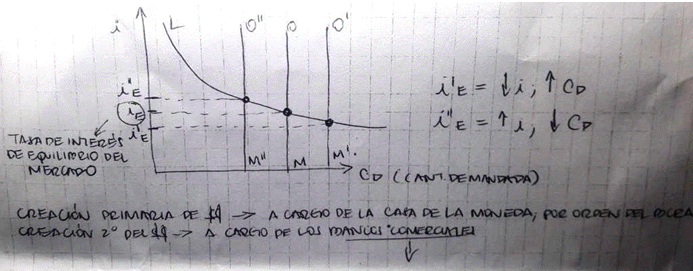 i
L
O"
O
O'
i"E
iE
i'E
TASA DE INTERÉS
DE EQUILIBRIO DEL
MERCADO
M"
M
M'.
CD (CANT. DEMANDADA)
i'E = ↓i, ↑CD
i"E = ↑i, ↓CD
CREACIÓN PRIMARIA DE $ → A CARGO DE LA CASA DE LA MONEDA, POR ORDEN DEL
CREACIÓN 2º DEL $ → A CARGO DE LOS BANCOS COMERCIALES